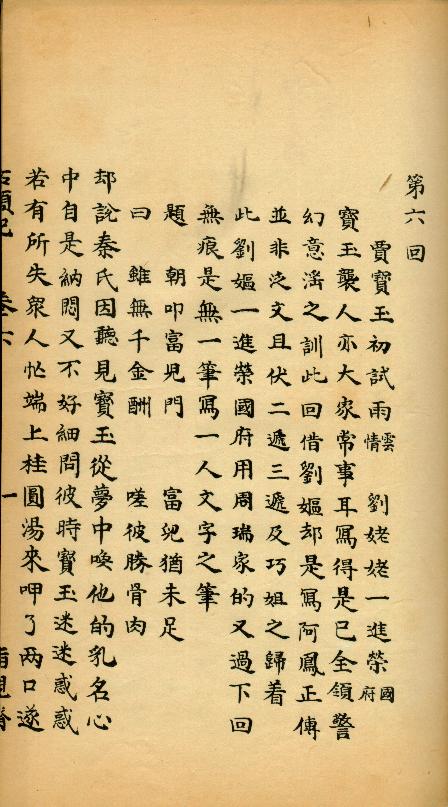 第六回
賈寶玉初試雨雲情 劉姥姥一進榮國府
寶玉襲人亦大家常事耳寫得是已全領警
幻意淫之訓此回借劉嫗却是寫阿鳳正傳
並非泛文且伏二遞三遞及巧姐之歸着
此劉嫗一進榮國府用周瑞家的又過下回
無痕是無一筆寫一人文字之筆
題 朝叩富兒門 富兒猶未足
曰 雖無千金酬 嗟彼勝骨肉
却說秦氏因聽見寶玉從夢中喚他的乳名心
中自是納悶又不好細問彼時寶玉迷迷惑惑
若有所失衆人忙端上桂圓湯來呷了兩口遂